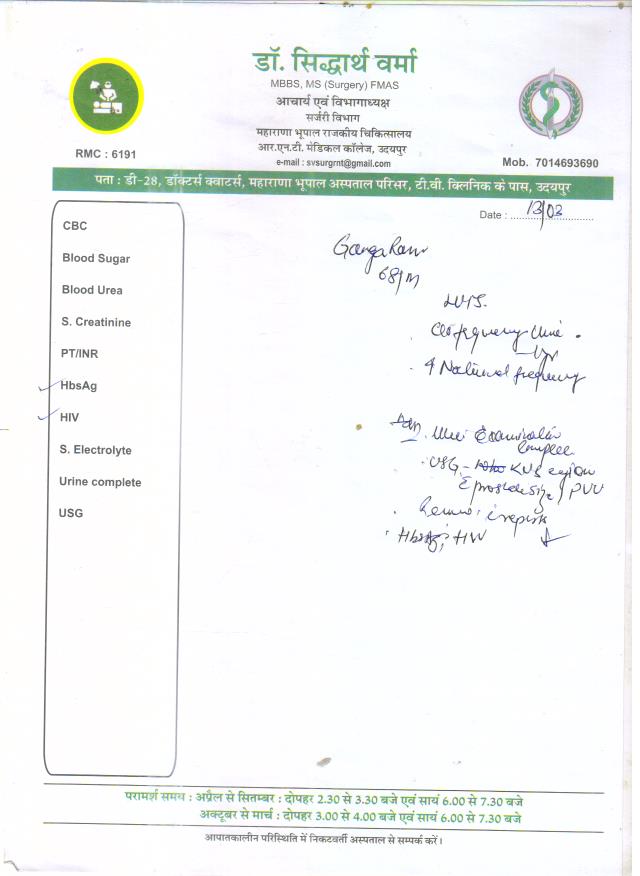 डॉ. सिद्धार्थ वर्मा
MBBS, MS (Surgery) FMAS
आचार्य एवं विभागाध्यक्ष
सर्जरी विभाग
महाराणा भूपाल राजकीय चिकित्सालय
आर.एन.टी. मेडिकल कॉलेज, उदयपुर
e-mail : svsurgrnt@gmail.com
RMC : 6191
Mob. 7014693690
पता : डी-28, डॉक्टर्स क्वाटर्स, महाराणा भूपाल अस्पताल परिसर, टी.वी. क्लिनिक के पास, उदयपुर
Date : 13/03
CBC
Blood Sugar
Blood Urea
S. Creatinine
PT/INR
HbsAg
HIV
S. Electrolyte
Urine complete
USG
Ganga Ram
68/M
LUTS.
frequency urine
frequency
Examination
Complete
USG - KUB region
prostate size / PVU
HbsAg, HIV
परामर्श समय : अप्रैल से सितम्बर : दोपहर 2.30 से 3.30 बजे एवं सायं 6.00 से 7.30 बजे
अक्टूबर से मार्च : दोपहर 3.00 से 4.00 बजे एवं सायं 6.00 से 7.30 बजे
आपातकालीन परिस्थिति में निकटवर्ती अस्पताल से सम्पर्क करें।